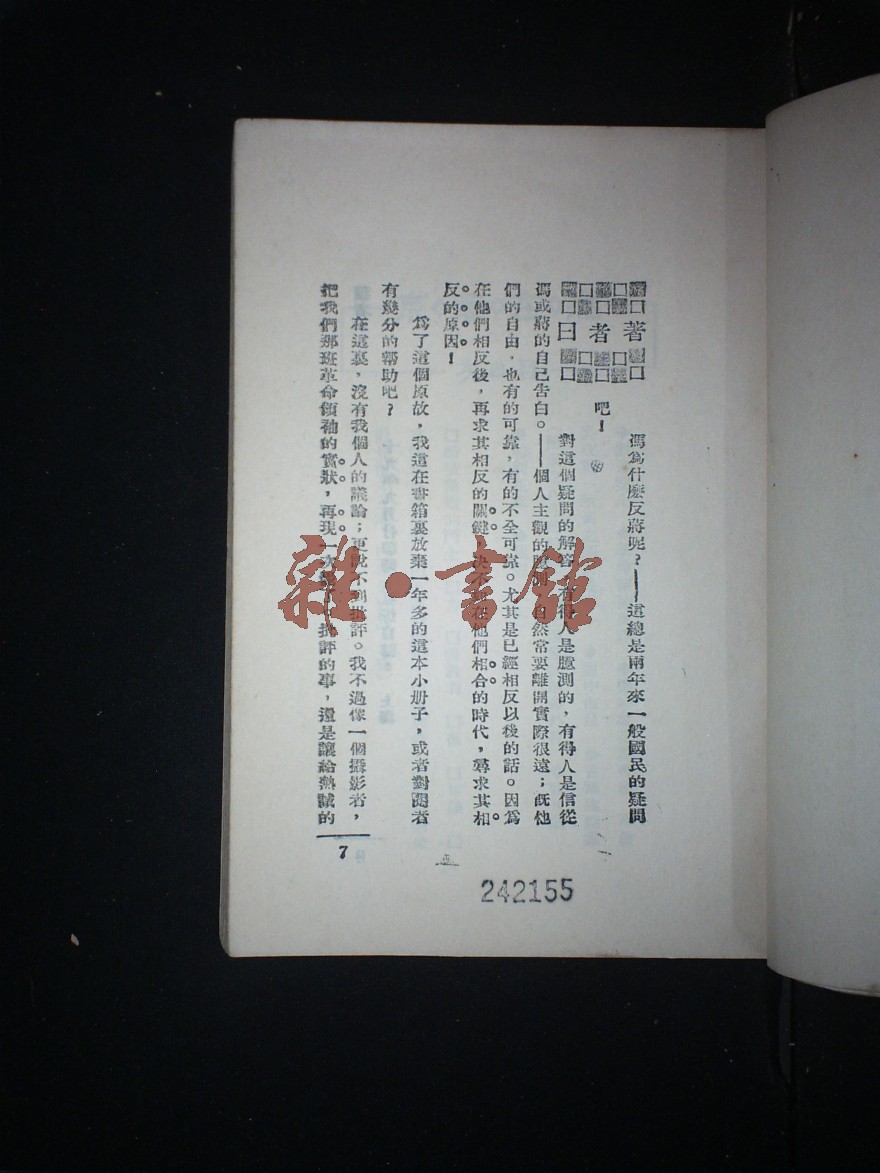 著者曰
馮爲什麼反蔣呢？——這總是兩年來一般國民的疑問
吧！
對這個疑問的解答，有得人是臆測的，有得人是信從
馮或蔣的自己告白。——個人主觀的臆測，自然常要離開實際很遠；旣他
們的自由，也有的可靠，有的不全可靠。尤其是已經相反以後的話。因爲
在他們相反後，再求其相反的關鍵，決不如在他們相合的時代，尋求其相
反的原因！
爲了這個原故，我這在書箱裏放棄一年多的這本小册子，或者對閱者
有幾分的幫助吧？
在這裏，沒有我個人的議論；更說不到批評。我不過像一個攝影者，
把我們那班革命領袖的實狀，再現一次 批評的事，還是讓給熱誠的
7
242155
雜·書館